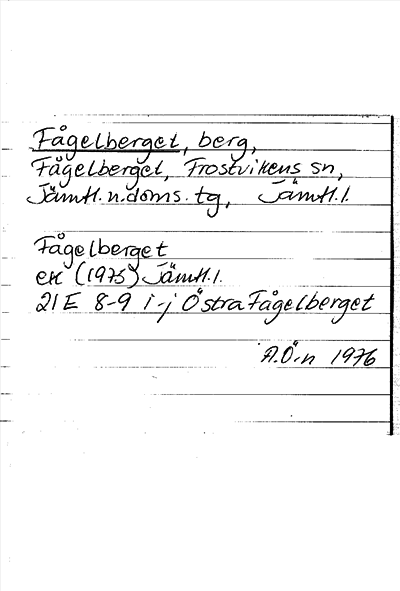 Fågelberget, berg,
Fågelberget, Frostvikens sn,
Jämtl. n. doms. tg, Jämtl. l.
Fågelberget
ek (1975) Jämtl. l.
21 E 8-9 i-j Östra Fågelberget
A.Ö-n 1976